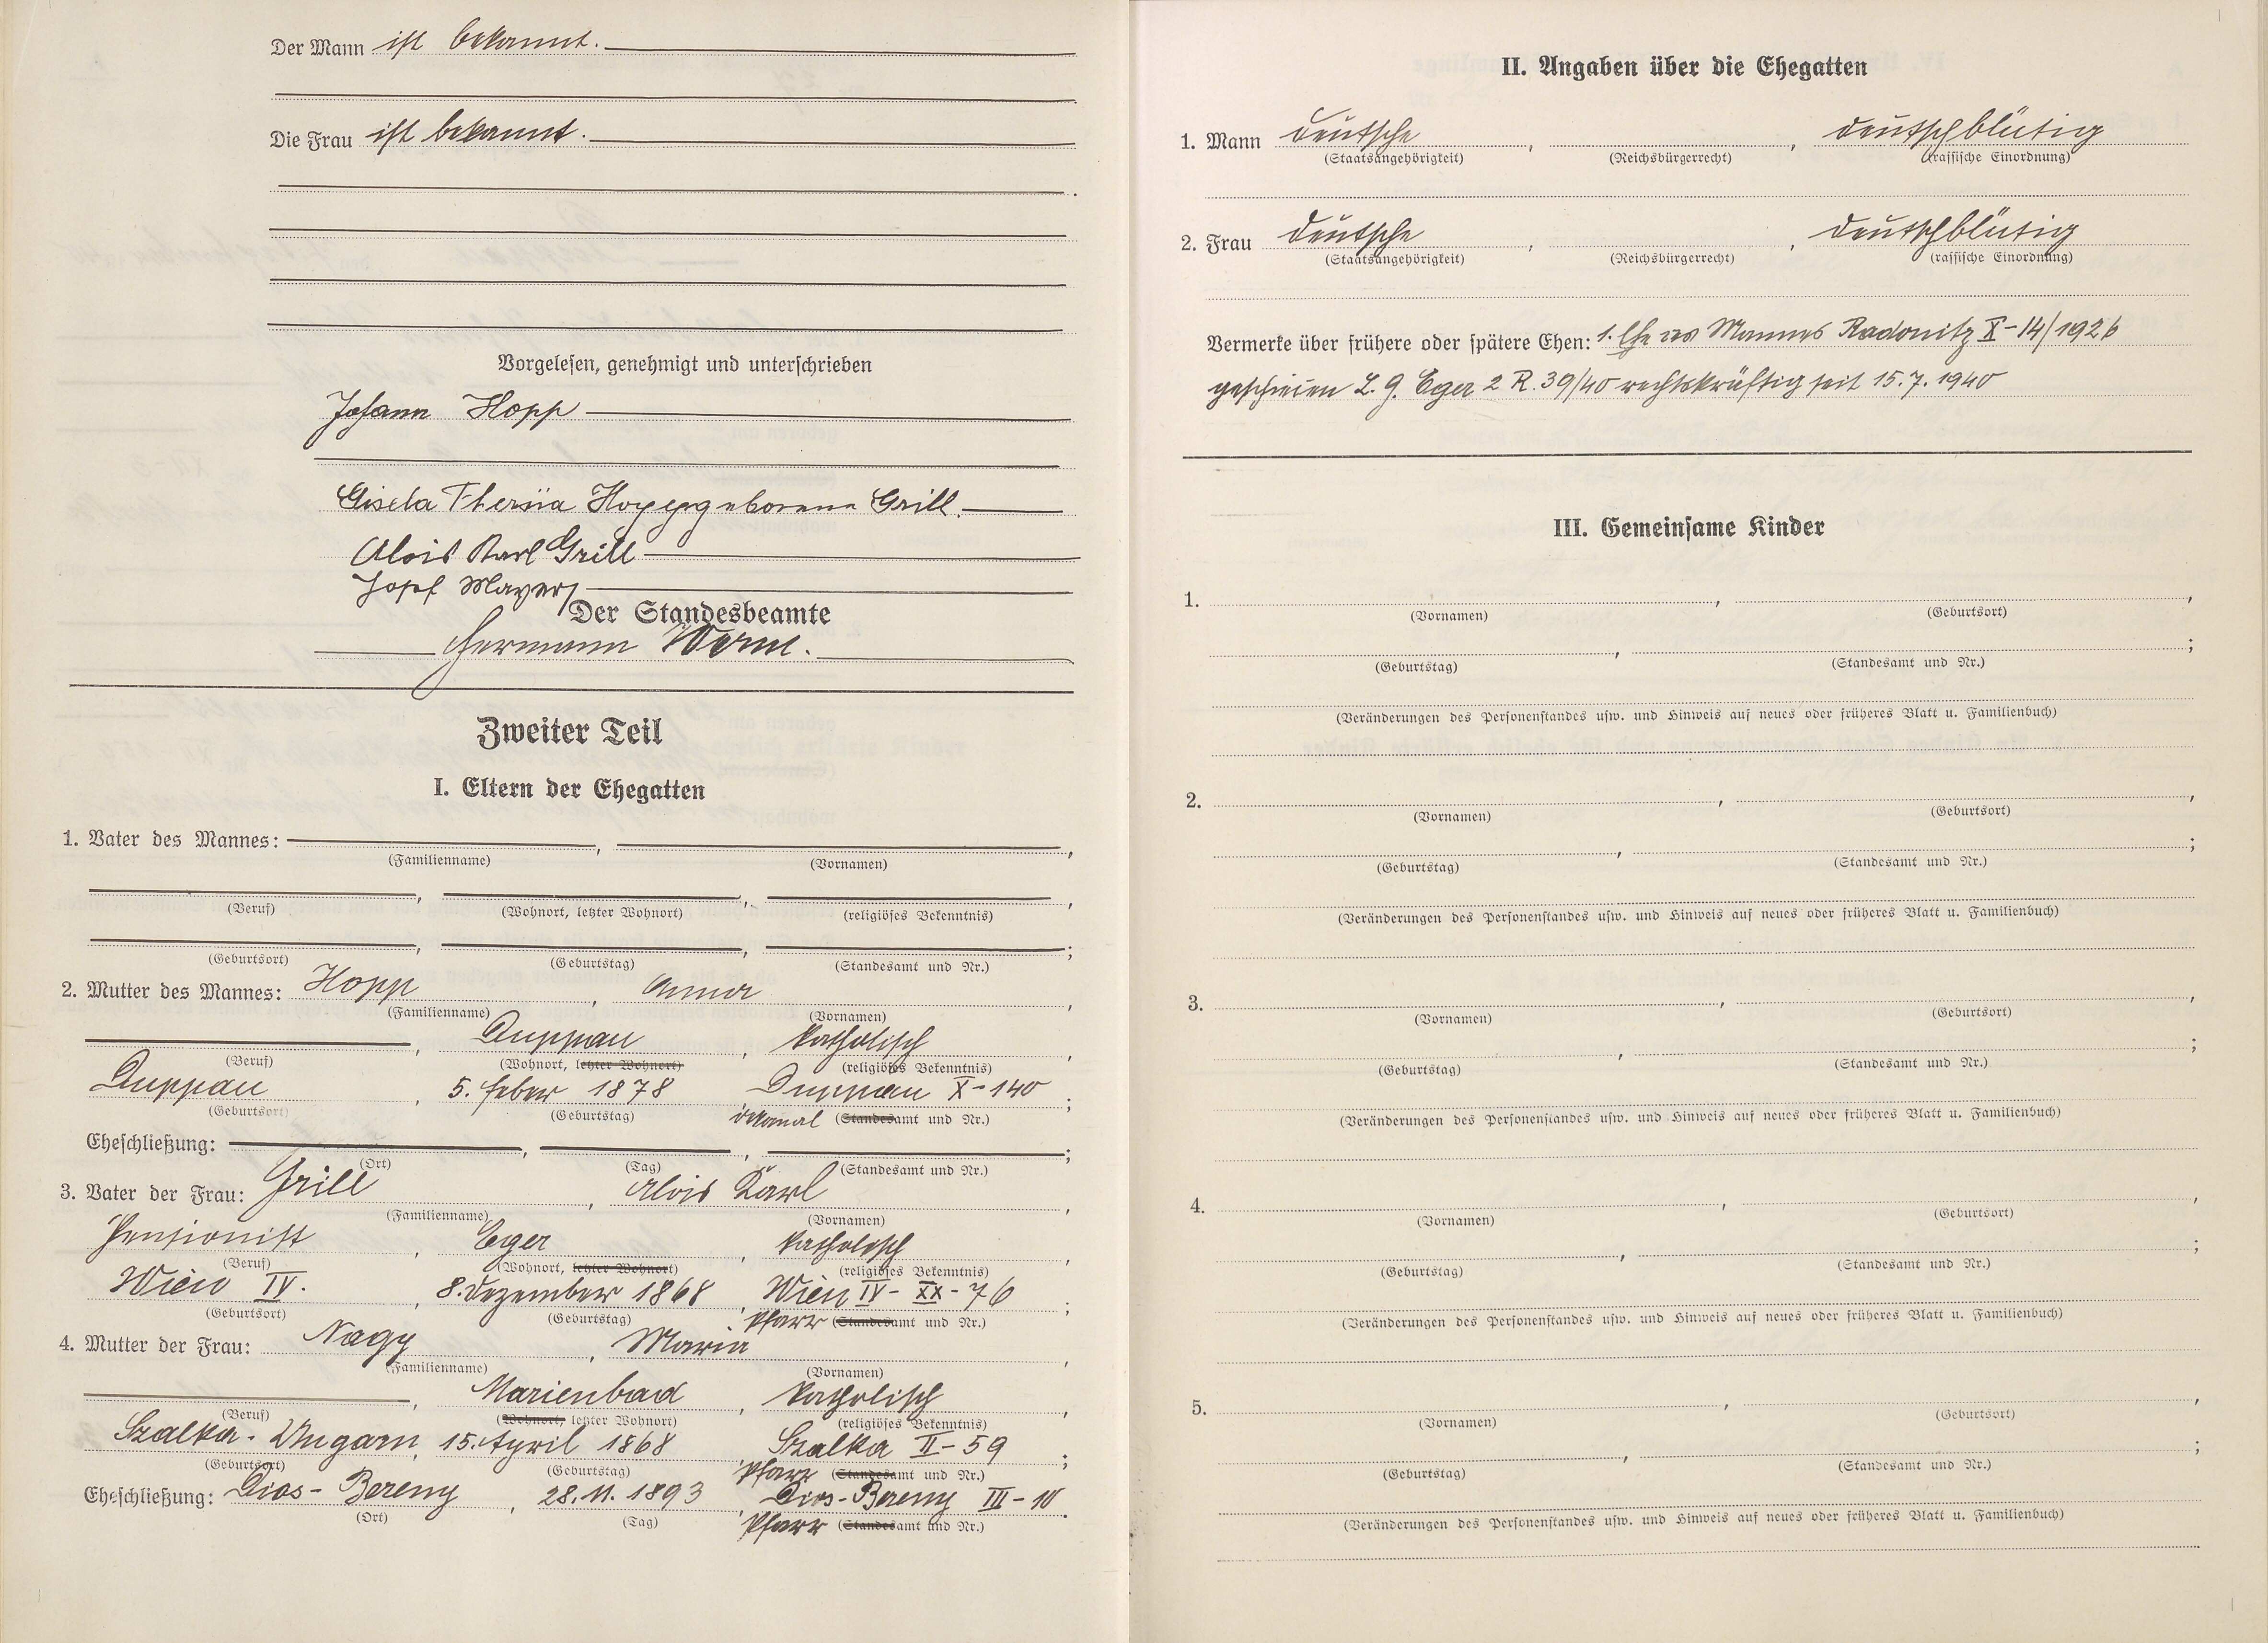 Der Mann ist bekannt.
Die Frau ist bekannt.
Vorgelesen, genehmigt und unterschrieben
Johann Hopp
Gisela Hopp geborene Grill.
Alois Karl Grill
Josef Mayer
Der Standesbeamte
Hermann
Zweiter Teil
I. Eltern der Ehegatten
1. Vater des Mannes: , ,
(Familienname) (Vornamen)
, , ,
(Beruf) (Wohnort, letzter Wohnort) (religiöses Bekenntnis)
, , ;
(Geburtsort) (Geburtstag) (Standesamt und Nr.)
2. Mutter des Mannes: Hopp , Anna ,
(Familienname) (Vornamen)
, Duppau , katholisch ,
(Beruf) (Wohnort, letzter Wohnort) (religiöses Bekenntnis)
Duppau , 5. Feber 1878 , Duppau X-140 ;
(Geburtsort) (Geburtstag) (Standesamt und Nr.)
Eheschließung: , , ;
(Ort) (Tag) (Standesamt und Nr.)
3. Vater der Frau: Grill , Alois Karl ,
(Familienname) (Vornamen)
Pensionist , Eger , katholisch ,
(Beruf) (Wohnort, letzter Wohnort) (religiöses Bekenntnis)
Wien IV. , 8. Dezember 1868 , Wien IV - XX - 76 ;
(Geburtsort) (Geburtstag) Pfarr (Standesamt und Nr.)
4. Mutter der Frau: Nagy , Maria ,
(Familienname) (Vornamen)
, Marienbad , katholisch ,
(Beruf) (Wohnort, letzter Wohnort) (religiöses Bekenntnis)
Szalka - Ungarn , 15. April 1868 , Szalka II - 59 ;
(Geburtsort) (Geburtstag) Pfarr (Standesamt und Nr.)
Eheschließung: Dios - Bereny , 28.11.1893 , Dios - Bereny III - 10 .
(Ort) (Tag) Pfarr (Standesamt und Nr.)
II. Angaben über die Ehegatten
1. Mann deutsche , , deutschblütig
(Staatsangehörigkeit) (Reichsbürgerrecht) (rassische Einordnung)
2. Frau deutsche , , deutschblütig
(Staatsangehörigkeit) (Reichsbürgerrecht) (rassische Einordnung)
Vermerke über frühere oder spätere Ehen: 1. Ehe des Mannes Radonitz X - 14/1926
geschieden L. G. Eger 2 R. 39/40 rechtskräftig seit 15.7.1940
III. Gemeinsame Kinder
1. , ,
(Vornamen) (Geburtsort)
, ;
(Geburtstag) (Standesamt und Nr.)
(Veränderungen des Personenstandes usw. und Hinweis auf neues oder früheres Blatt u. Familienbuch)
2. , ,
(Vornamen) (Geburtsort)
, ;
(Geburtstag) (Standesamt und Nr.)
(Veränderungen des Personenstandes usw. und Hinweis auf neues oder früheres Blatt u. Familienbuch)
3. , ,
(Vornamen) (Geburtsort)
, ;
(Geburtstag) (Standesamt und Nr.)
(Veränderungen des Personenstandes usw. und Hinweis auf neues oder früheres Blatt u. Familienbuch)
4. , ,
(Vornamen) (Geburtsort)
, ;
(Geburtstag) (Standesamt und Nr.)
(Veränderungen des Personenstandes usw. und Hinweis auf neues oder früheres Blatt u. Familienbuch)
5. , ,
(Vornamen) (Geburtsort)
, ;
(Geburtstag) (Standesamt und Nr.)
(Veränderungen des Personenstandes usw. und Hinweis auf neues oder früheres Blatt u. Familienbuch)